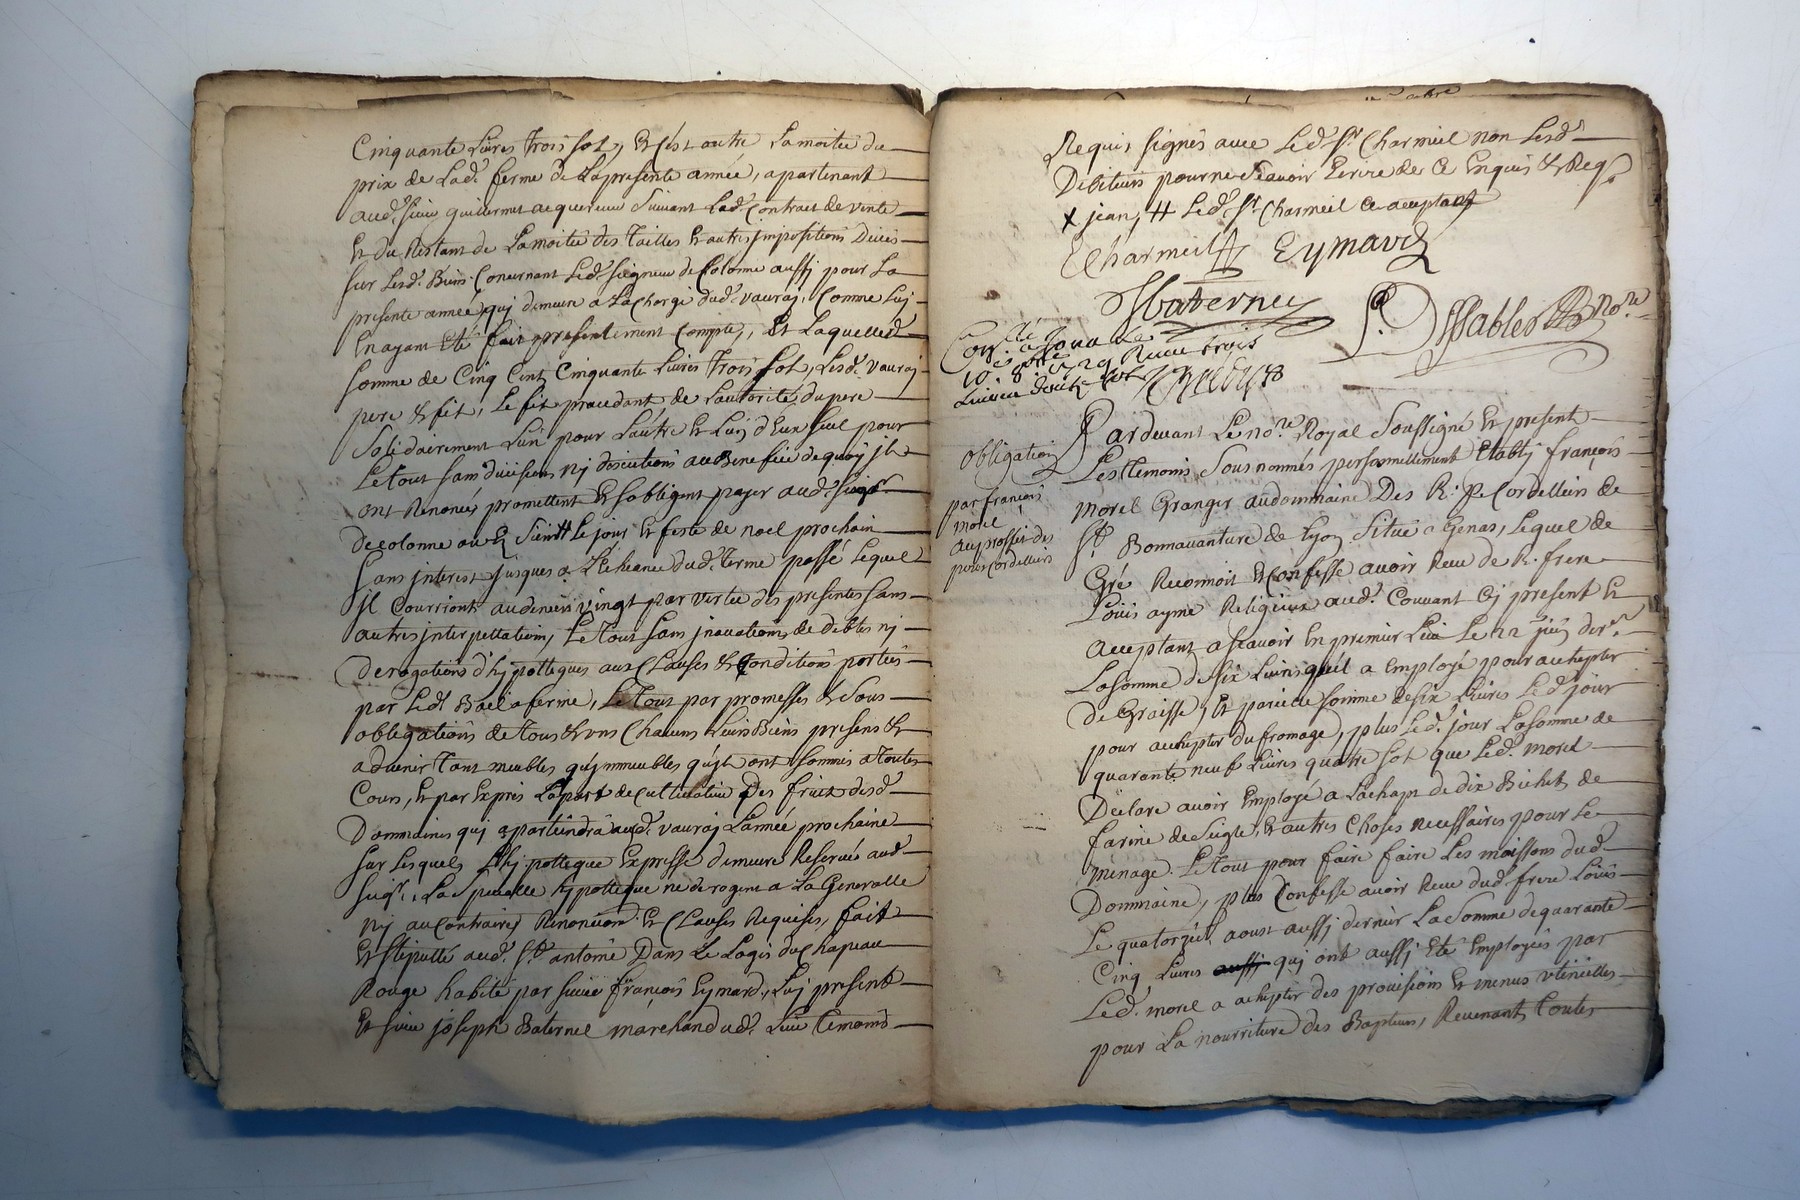 Cinquante Livres trois sol, Et c'est outre La moitiée du
prix de Lad.e ferme de La presente année, apartenant
aud. sieur guillermet acquereur suivant Led. Contract de vente
Et du Restant de La moitiée des Tailles Et autres jmpositions Deües
sur Lesd. Biens Concernant Led. seigneur de Colonne aussy pour La
presente année quj demeure a La charge dud. vauraj, Comme Luj
En ayant Eté fait presentement Compte, Et Laquelled.
somme de Cinq Cent Cinquante Livres Trois sol, Lesd. vauraj
pere & fils, Le fils procedant de L'autorité du pere
Solidairement L'un pour L'autre Et L'un d'Eux seul pour
Le tout sans division nj discutions au Benefice de quoy jls
ont Renoncés promettent Et s'obligent payer aud. seigr.
de colonne ou Es Siens # Le jour Et feste de noel prochain
sans jnterest jusques a L'Echeance dud. Terme passé Lequel
jl Courriont au denier vingt par vertu des presentes sans
autres jnterpellation, Le Tout sans jnovations de debtes nj
derogations d'hjpotteques aux Clauses & Conditions portées
par Led. Bail a ferme, Le Tout par promesses & sous
obligations de Tous & uns Chacuns Leurs Biens presens &
advenir Tant meubles qu'jmmeubles qu'jls ont soumis a Toutes
Cours, Et par Exprés La part de Cultivature Des fruits desd.
Dommaines quj apartiendra aud. vauraj L'année prochaine
sur Lesquels L'hjpotteque Expresse demeure Reservée aud.
seigr., La speciale hjpotteque ne derogent a La Generalle
Nj au Contraire, Renonciãon Et Clauses Requises, fait
Et stipullé aud. St. antoine Dans Le Logis du Chapeau
Rouge habité par sieur françois Eymard, Luj present
Et sieur joseph Baternel marchand ud. Lieu Temoins
Requis signés avec Led. Sr. Charmeil non Lesd.
Debiteurs pour ne sçavoir Ecrire de Ce Enquis & Req.s
X jean, # Led. Sr. Charmeil Ce acceptant
Charmeil Eymard
Baternel
No.re
10 8bre 1729 Receu trois
Livres douze sols
obligation
par françois
morel
au proffit des
peres cordelliers
Pardevant Le no.re Royal Soussigné Et present
Les Temoins Sous nommés personnellement Etablj françois
morel Granger au dommaine Des R. P. Cordelliers de
St. Bonnavanture de Lyon situé a Genas, Lequel de
Gré Reconnoit & Confesse avoir Receu de R. frere
Loüis ayme Religieux aud. Couvant Cj present Et
acceptant a sçavoir En premier Lieu Le 22 juin der.r
La somme de six Livres qu'il a Employé pour achepter
De Graisse, Et pareille somme de six Livres Led. jour
pour achepter du fromage, plus Led. jour La somme de
quarante neuf Livres quatre sol que Led. morel
Declare avoir Employé a L'achapt de dix Bichets de
farine de seigle, Et autres choses necessaires pour Le
menage. Le Tout pour faire faire Les moissons dud.
Dommaine, plus Confesse avoir Receu dud. frere Loüis
Le quatorze aoust aussj dernier La somme de quarante
Cinq Livres aussj quj ont aussj Eté Employées par
Led. morel a achepter des provisions Et menus utencilles
pour La nourriture des Bapteurs, Revenants Toutes